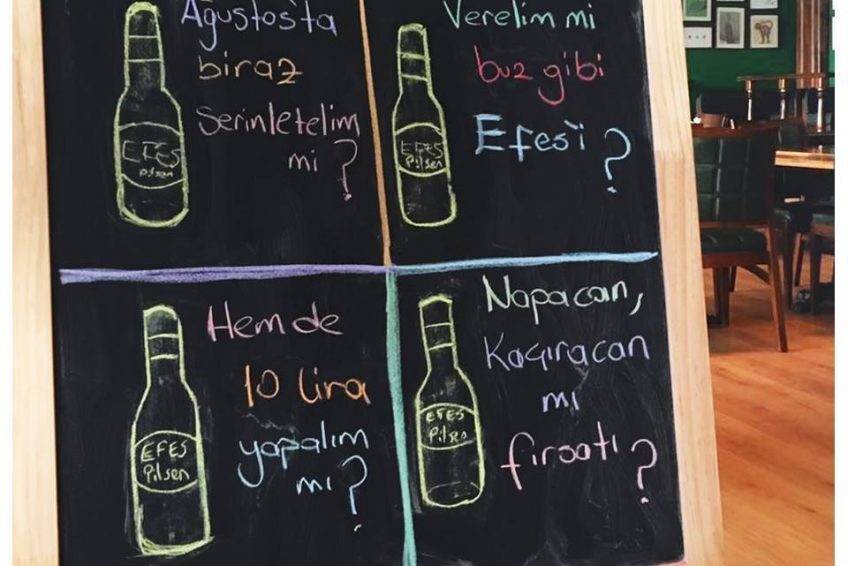 Ağustos'ta
biraz
Serinletelim
mi ?
EFES
Pilsen
Verelim mi
buz gibi
Efes'i ?
EFES
Pilsen
Hem de
10 lira
yapalım
mı ?
EFES
Pilsen
Napacan,
Kaçıracan
mı
fırsatı ?
EFES
Pilsen